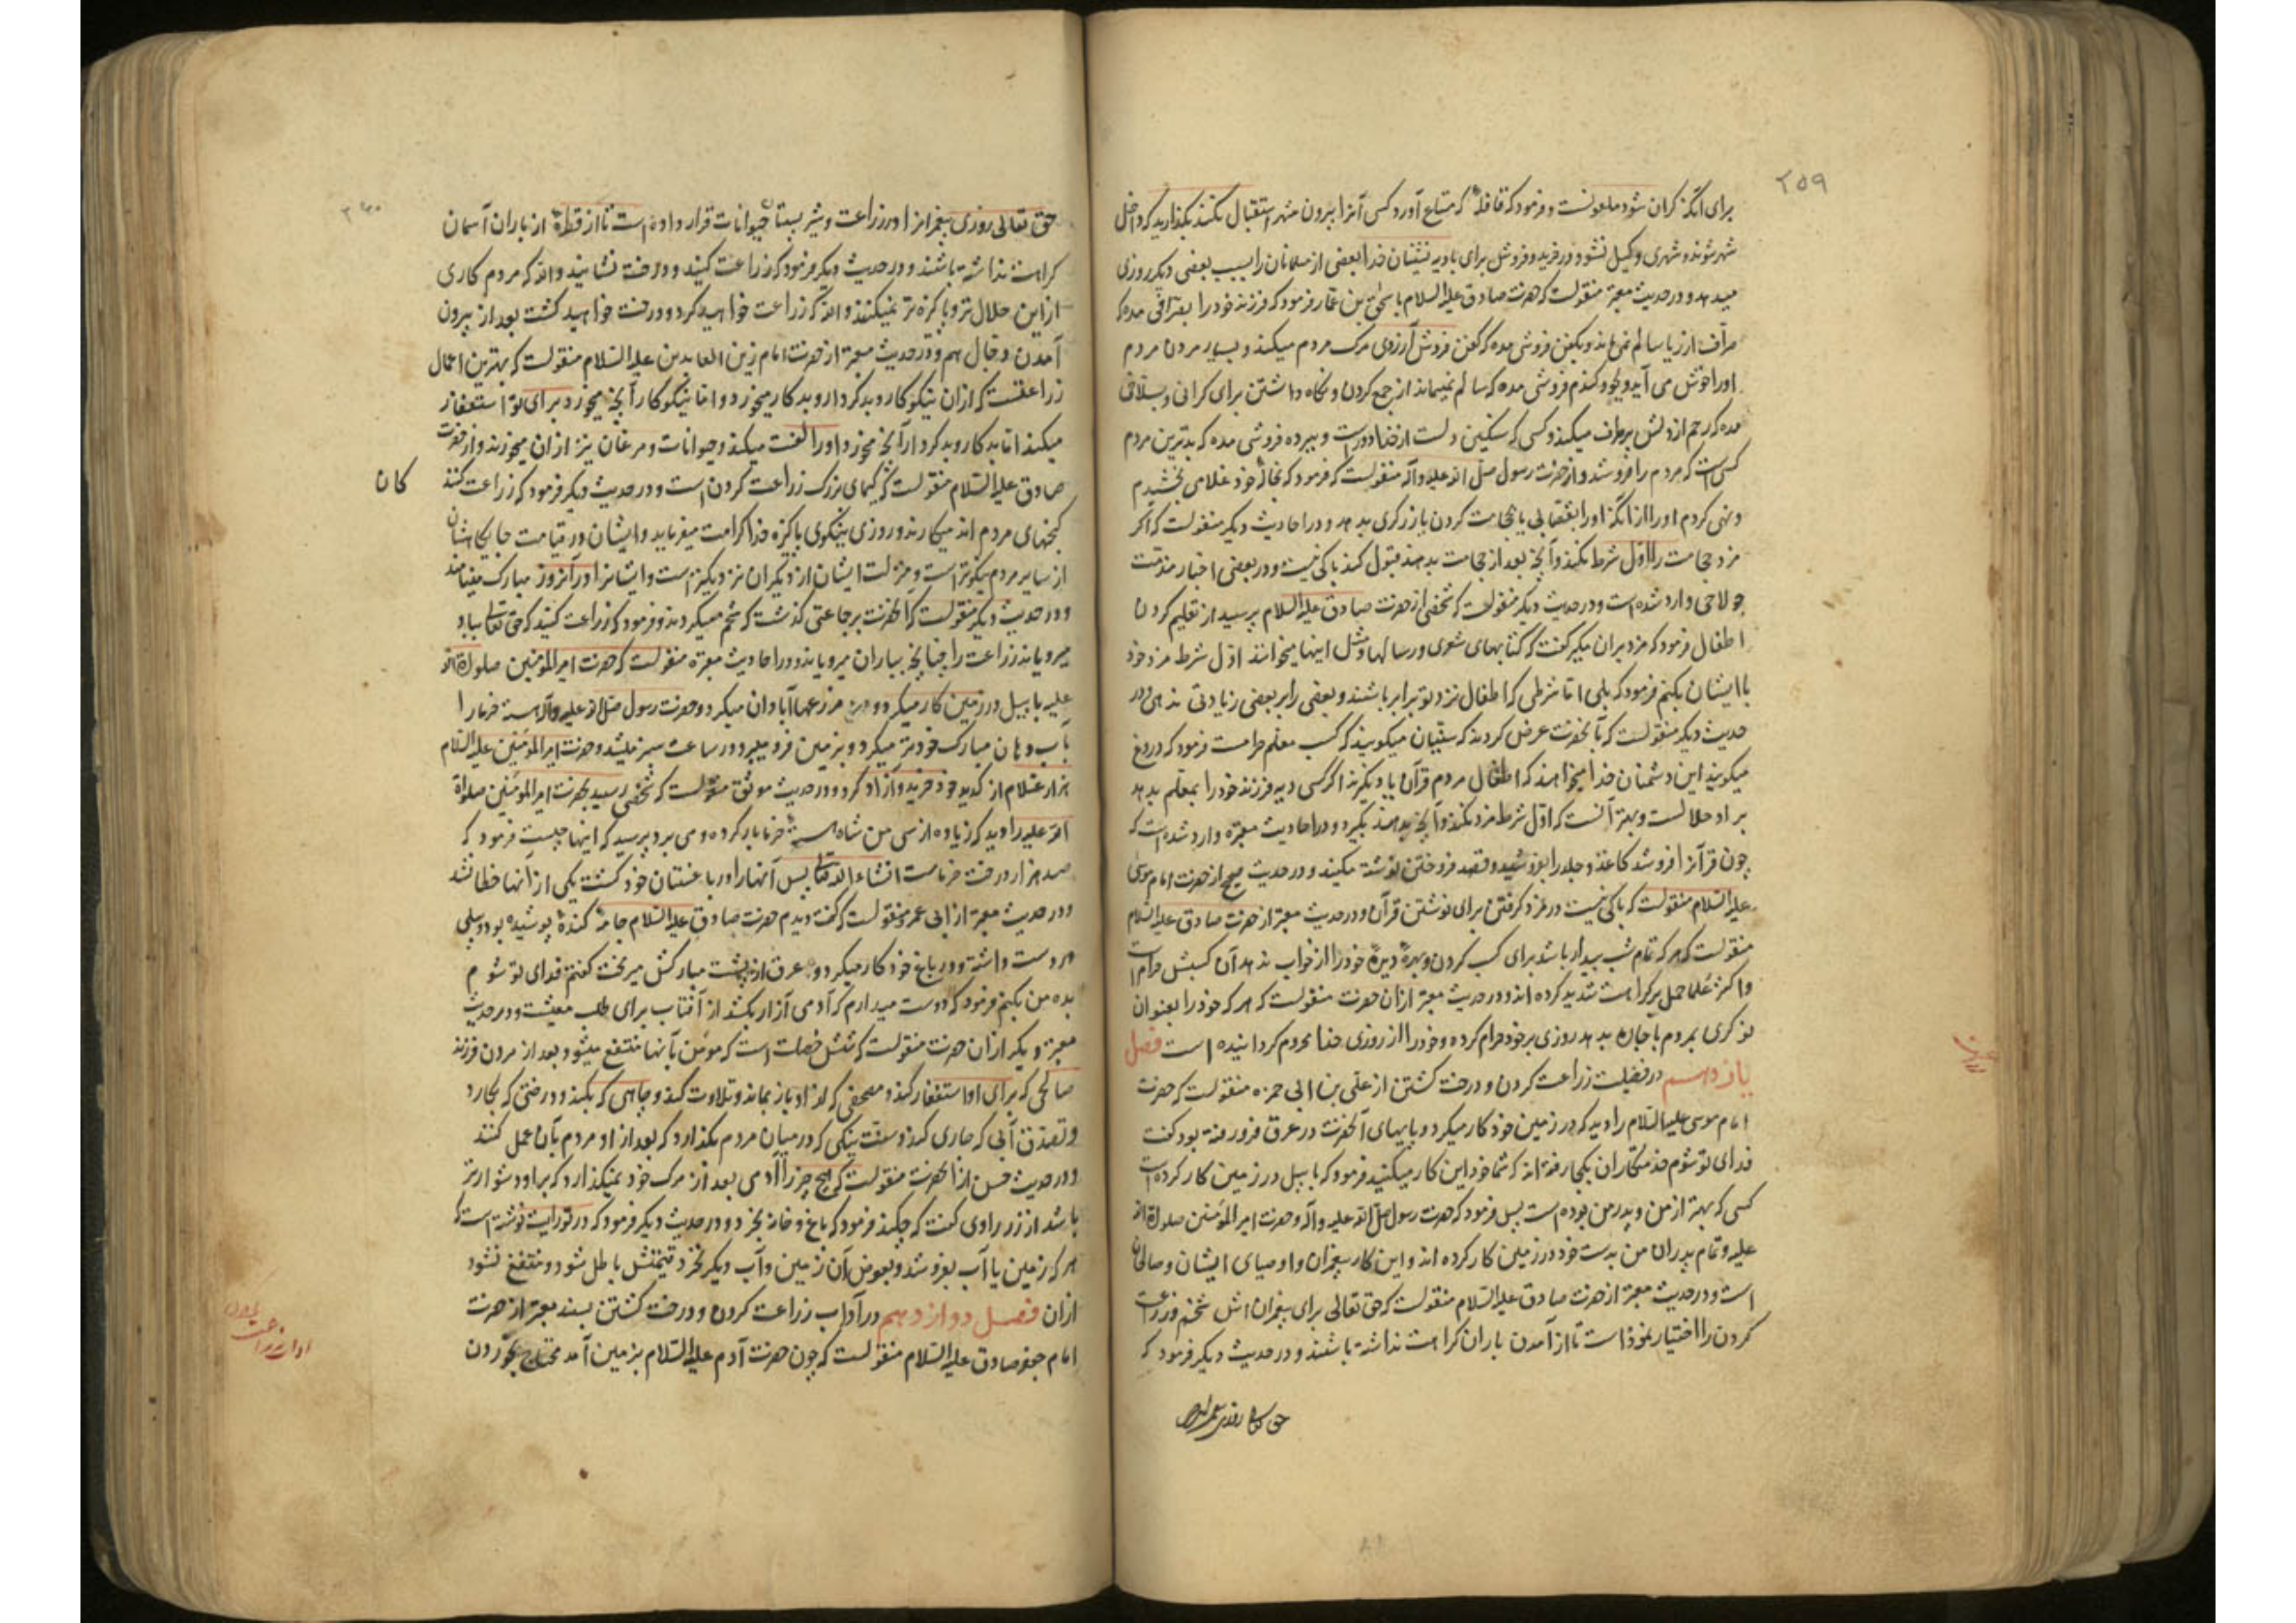 ۲۵۹
برای آنکه گران شود ملعونست و فرمود که قافله که متاع آورد کس آنرا بیرون شهر استقبال نکند بگذارید که داخل
شهر شوند و شهری وکیل نشود در خرید و فروش برای بادیه نشینان خدا بعضی از مسلمانان را بسبب بعضی دیگر روزی
میدهد و در حدیث معتبر منقولست که حضرت صادق علیه السلام باسحق بن عمار فرمود که فرزند خود را بصرافی مده که
صراف از ربا سالم نمی ماند و بکفن فروشی مده که کفن فروش آرزوی مرک مردم میکند و بسیار مردن مردم
او را خوش می آید و بجو و کندم فروشی مده که سالم نمیماند از جمع کردن و نگاه داشتن برای کرانی و بسلاخی
مده که رحم از دلش برطرف میکند و کسی که سنکین دلست از خدا دور است و ببرده فروشی مده که بدترین مردم
کسی است که مردم را فروشد و از حضرت رسول صلی الله علیه و آله منقولست که فرمود که بخاله خود غلامی بخشیدم
و نهی کردم او را از آنکه او را بقصابی یا حجامت کردن یا زرکری بدهد و در احادیث دیگر منقولست که اگر
مزد حجامت را اول شرط نکند و آنچه بعد از حجامت بدهند قبول کند باکی نیست و در بعضی اخبار مذمت
جولاهی وارد شده است و در حدیث دیگر منقولست که شخصی از حضرت صادق علیه السلام پرسید از تعلیم کردن
اطفال فرمود که مزد بر آن مگیر گفت که کتابهای شعری و رسالها و مثل اینها میخوانند اول شرط مزد خود
با ایشان بکنم فرمود که بلی اما شرطی که اطفال نزد تو برابر باشند و بعضی را بر بعضی زیادتی ندهی و در
حدیث دیگر منقولست که بآنحضرت عرض کردند که سنیان میکویند که کسب معلم حرامست فرمود که دروغ
میکویند این دشمنان خدا میخواهند که اطفال مردم قرآن یاد نگیرند اگر کسی دیه فرزند خود را بمعلم بدهد
بر او حلالست و بهتر آنست که اول شرط مزد نکند و آنچه بدهند بگیرد و در احادیث معتبره وارد شده است که
چون قرآنرا فروشد کاغذ و جلد را بفروشید و قصد فروختن نوشته مکنید و در حدیث صحیح از حضرت امام موسی
علیه السلام منقولست که باکی نیست در مزد کرفتن برای نوشتن قرآن و در حدیث معتبر از حضرت صادق علیه السلام
منقولست که هر که تمام شب بیدار باشد برای کسب کردن و بهره دیده خود را از خواب ندهد آن کسبش حرام است
و اکثر علما حمل بر کراهت شدید کرده اند و در حدیث معتبر از آن حضرت منقولست که هر که خود را بعنوان
نوکری بمردم باجاره بدهد روزی بر خود حرام کرده و خود را از روزی خدا محروم کردانیده است فصل
یازدهم در فضیلت زراعت کردن و درخت کشتن از علی بن ابی حمزه منقولست که حضرت
امام موسی علیه السلام را دید که در زمین خود کار میکرد و پایهای آنحضرت در عرق فرو رفته بود گفت
فدای تو شوم خدمتکاران بکجا رفته اند که شما خود این کار میکنید فرمود که با بیل در زمین کار کرده است
کسی که بهتر از من و پدر من بوده است پس فرمود که حضرت رسول صلی الله علیه و آله و حضرت امیر المؤمنین صلوات الله
علیه و تمام پدران من بدست خود در زمین کار کرده اند و این کار پیغمبران و اوصیای ایشان و صالحان
است و در حدیث معتبر از حضرت صادق علیه السلام منقولست که حق تعالی برای پیغمبرانش تخم و زراعت
کردن را اختیار نموده است تا از آمدن باران کراهت نداشته باشند و در حدیث دیگر فرمود که
حق تعالی روزی پیغمبرانرا
۲۶۰
حق تعالی روزی پیغمبرانرا در زراعت و شیر پستان حیوانات قرار داده است تا از قطره از باران آسمان
کراهت نداشته باشند و در حدیث دیگر فرمود که زراعت کنید و درخت نشانید والله که مردم کاری
از این حلال تر و پاکیزه تر نمیکنند والله که زراعت خواهید کرد و درخت خواهید کشت بعد از بیرون
آمدن دجال هم و در حدیث معتبر از حضرت امام زین العابدین علیه السلام منقولست که بهترین اعمال
زراعتست که از آن نیکوکار و بدکردار و بدکار میخورد و اما نیکوکار آنچه میخورد برای تو استغفار
میکند اما بدکار و بدکردار آنچه میخورد او را لعنت میکند و حیوانات و مرغان نیز از آن میخورند و از حضرت
صادق علیه السلام منقولست که کیمیای بزرک زراعت کردن است و در حدیث دیگر فرمود که زراعت کنند
کان
کنجهای مردم اند میکارند و روزی نیکوی پاکیزه خدا کرامت میفرماید و ایشان در قیامت جایگاهشان
از سایر مردم نیکوتر است و منزلت ایشان از دیگران نزدیکتر است و ایشانرا در آنروز مبارک مینامند
و در حدیث دیگر منقولست که آنحضرت بر جماعتی گذشت که تخم میکردند و فرمود که زراعت کنید که حق تعالی بباد
میرویاند زراعت را چنانچه بباران میرویاند و در احادیث معتبره منقولست که حضرت امیر المؤمنین صلوات الله
علیه با بیل در زمین کار میکرد و مزرعها آبادان میکرد و حضرت رسول صلی الله علیه و آله هسته خرما را
بآب دهان مبارک خود تر میکرد و بزمین فرو میبرد و در ساعت سبز میشد و حضرت امیر المؤمنین علیه السلام
هزار غلام از کد ید خود خرید و آزاد کرد و در حدیث موثق منقولست که شخصی رسید بحضرت امیر المؤمنین صلوات
الله علیه را دید که زیاده از سی من شاه هسته خرما بار کرده و می برد پرسید که اینها چیست فرمود که
صد هزار درخت خرماست انشاء الله تعالی پس آنها را در باغستان خود کشت یکی از آنها خطا نشد
و در حدیث معتبر از ابی عمرو منقولست که گفت دیدم حضرت صادق علیه السلام جامه کنده پوشیده بود و بیلی
در دست داشت و در باغ خود کار میکرد و عرق از پشت مبارکش میریخت گفتم فدای تو شوم
بده من بکنم فرمود که دوست میدارم که آدمی آزار بکشد از آفتاب برای طلب معیشت و در حدیث
معتبر دیگر از آن حضرت منقولست که شش خصلت است که مؤمن بآنها منتفع میشود بعد از مردن فرزند
صالحی که برای او استغفار کند و مصحفی که از او باز بماند و تلاوت کنند و چاهی که بکند و درختی که بکارد
و تصدق آبی که جاری کند و سنت نیکی که در میان مردم بگذارد که بعد از او مردم بآن عمل کنند
و در حدیث حسن از آنحضرت منقولست که هیچ چیز را آدمی بعد از مرک خود نمیگذارد که بر او دشوارتر
باشد از زر راوی گفت که چکند فرمود که باغ و خانه بخرد و در حدیث دیگر فرمود که در توریت نوشته است که
هر که زمین یا آب بفروشد و بعوض آن زمین و آب دیگر نخرد قیمتش باطل شود و منتفع نشود
از آن فصل دوازدهم در آداب زراعت کردن و درخت کشتن بسند معتبر از حضرت
امام جعفر صادق علیه السلام منقولست که چون حضرت آدم علیه السلام بزمین آمد محتاج بخوردن